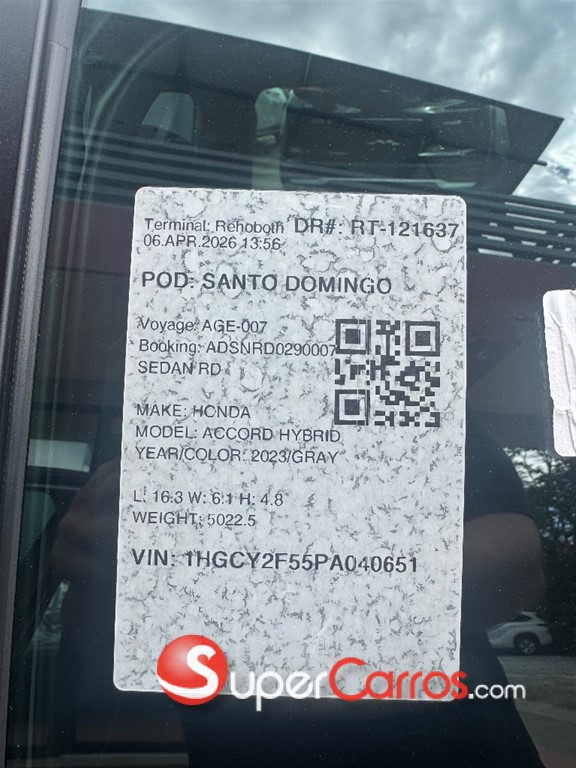 Terminal: Rehoboth DR#: RT-121637
06.APR.2026 13:56
POD: SANTO DOMINGO
Voyage: AGE-007
Booking: ADSNRD0290007
SEDAN RD
MAKE: HONDA
MODEL: ACCORD HYBRID
YEAR/COLOR: 2023/GRAY
L: 16.3 W: 6.1 H: 4.8
WEIGHT: 5022.5
VIN: 1HGCY2F55PA040651
SuperCarros.com